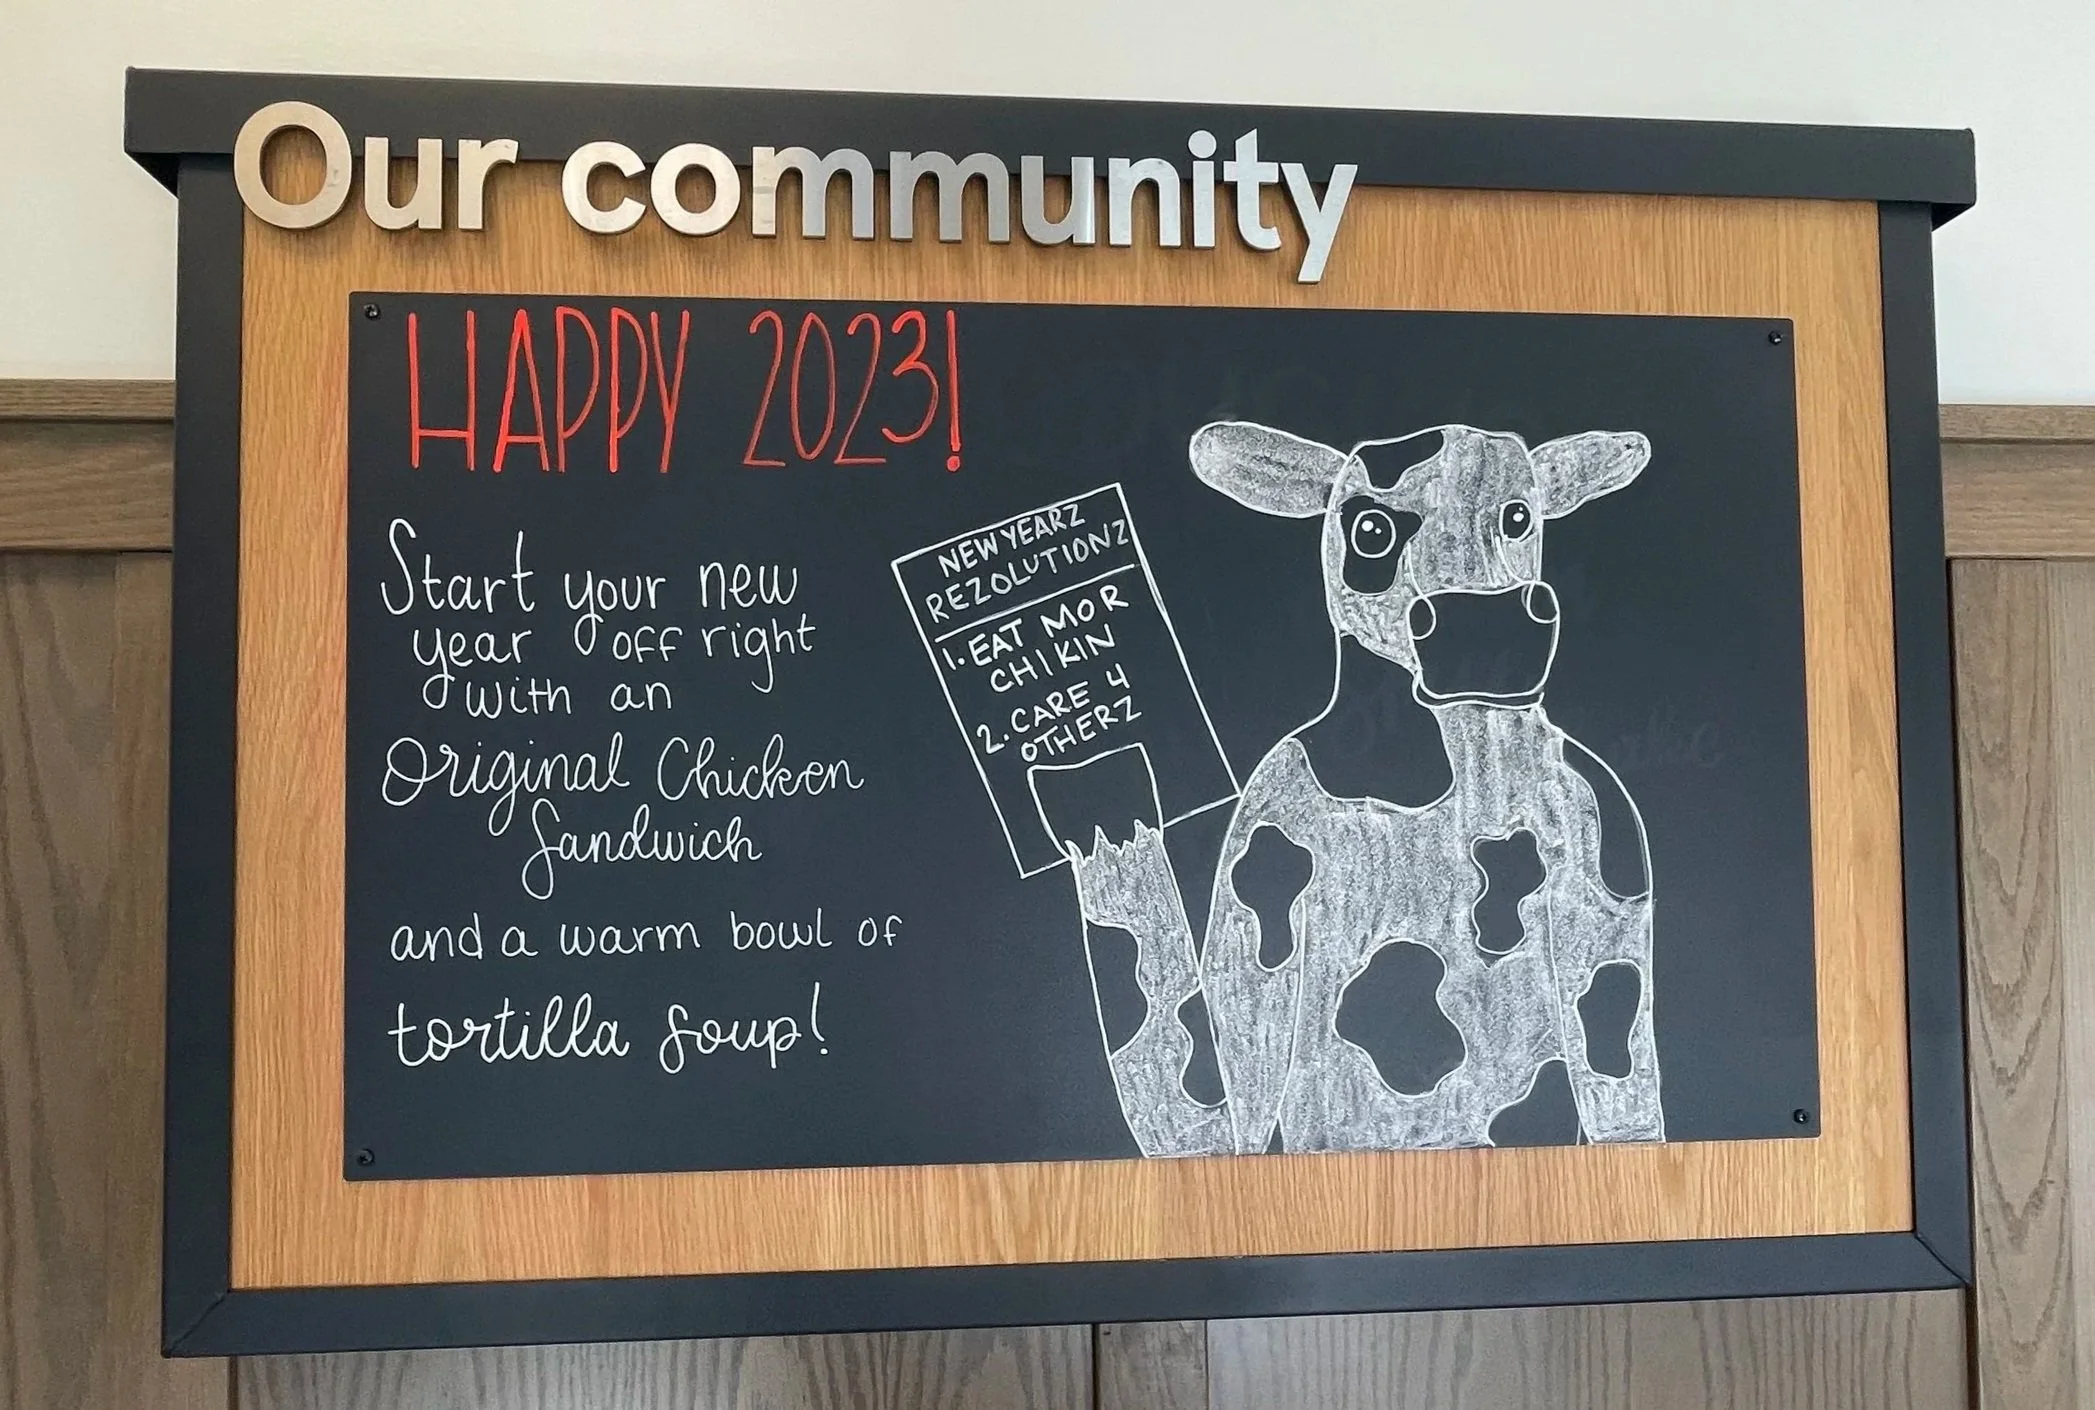 Our community
HAPPY 2023!
Start your new
year off right
with an
Original Chicken
Sandwich
and a warm bowl of
tortilla soup!
NEW YEARZ
REZOLUTIONZ
1. EAT MOR
CHIKIN
2. CARE 4
OTHERZ